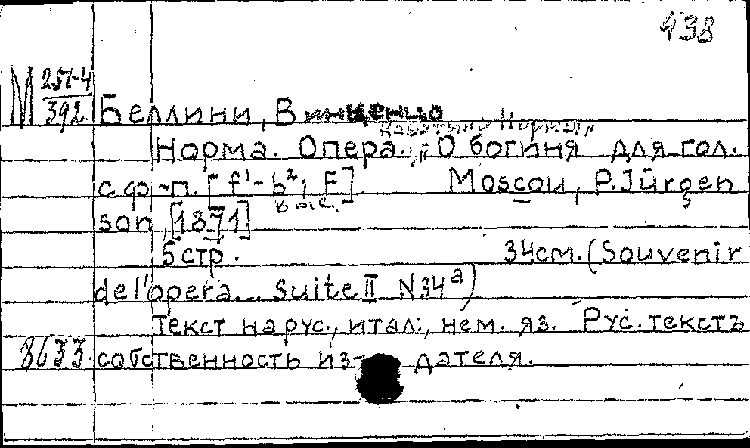 438
М 257-4
392 Беллини, Винценцо
Каватина Нормы
Норма. Опера. „О богиня для гол.
с ф-п. [f¹-b²; F]. Moscou, P. Jürgen
выс.
son, [1871]
5 стр. 34 см. (Souvenir
del'opera... Suite II N34a)
Текст на рус., итал., нем. яз. Рус. текстъ
8633. собственность издателя.